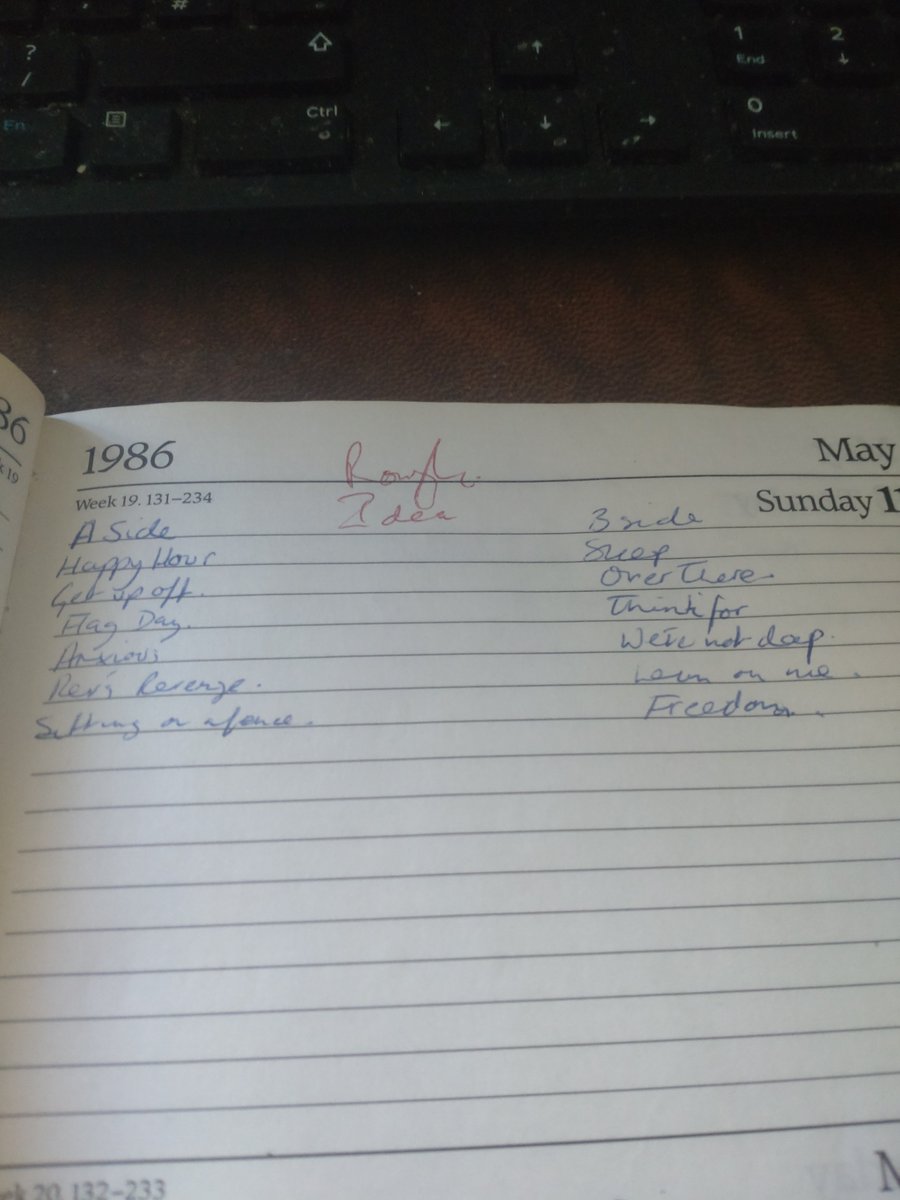 #
?
/
1
End
2
↓
En
Ctrl
↑
←
↓
→
0
Insert
86
k 19
1986
Rough
Idea
May
Week 19. 131–234
Sunday 11
A Side
B side
Happy Hour
Sheep
Get up off.
Over There.
Flag Day.
Think for
Anxious
We're not deep.
Rev's Revenge.
Lean on me.
Sitting on a fence.
Freedom.
ek 20. 132–233
M